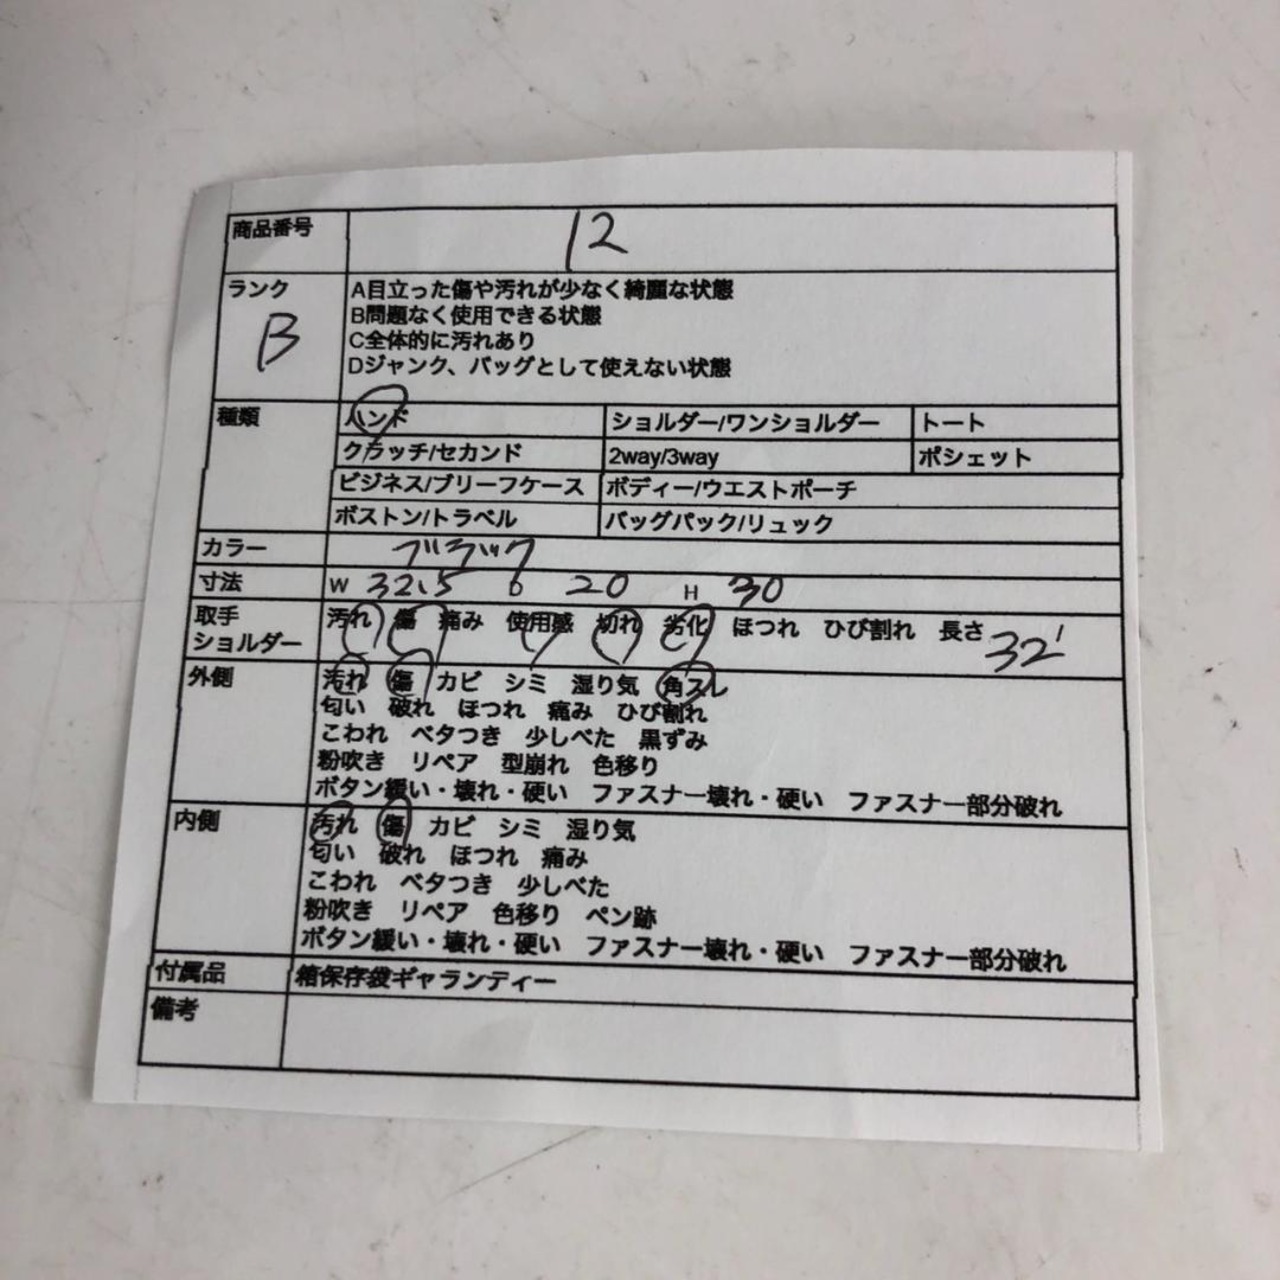 商品番号 12
ランク B
A目立った傷や汚れが少なく綺麗な状態
B問題なく使用できる状態
C全体的に汚れあり
Dジャンク、バッグとして使えない状態
種類 ハンド ショルダー/ワンショルダー トート
クラッチ/セカンド 2way/3way ポシェット
ビジネス/ブリーフケース ボディー/ウエストポーチ
ボストン/トラベル バッグパック/リュック
カラー ブラック
寸法 W 32.5 D 20 H 30
取手 汚れ 傷 痛み 使用感 切れ 劣化 ほつれ ひび割れ 長さ 32
ショルダー
外側 汚れ 傷 カビ シミ 湿り気 角スレ
匂い 破れ ほつれ 痛み ひび割れ
こわれ ベタつき 少しべた 黒ずみ
粉吹き リペア 型崩れ 色移り
ボタン緩い・壊れ・硬い ファスナー壊れ・硬い ファスナー部分破れ
内側 汚れ 傷 カビ シミ 湿り気
匂い 破れ ほつれ 痛み
こわれ ベタつき 少しべた
粉吹き リペア 色移り ペン跡
ボタン緩い・壊れ・硬い ファスナー壊れ・硬い ファスナー部分破れ
付属品 箱保存袋ギャランティー
備考